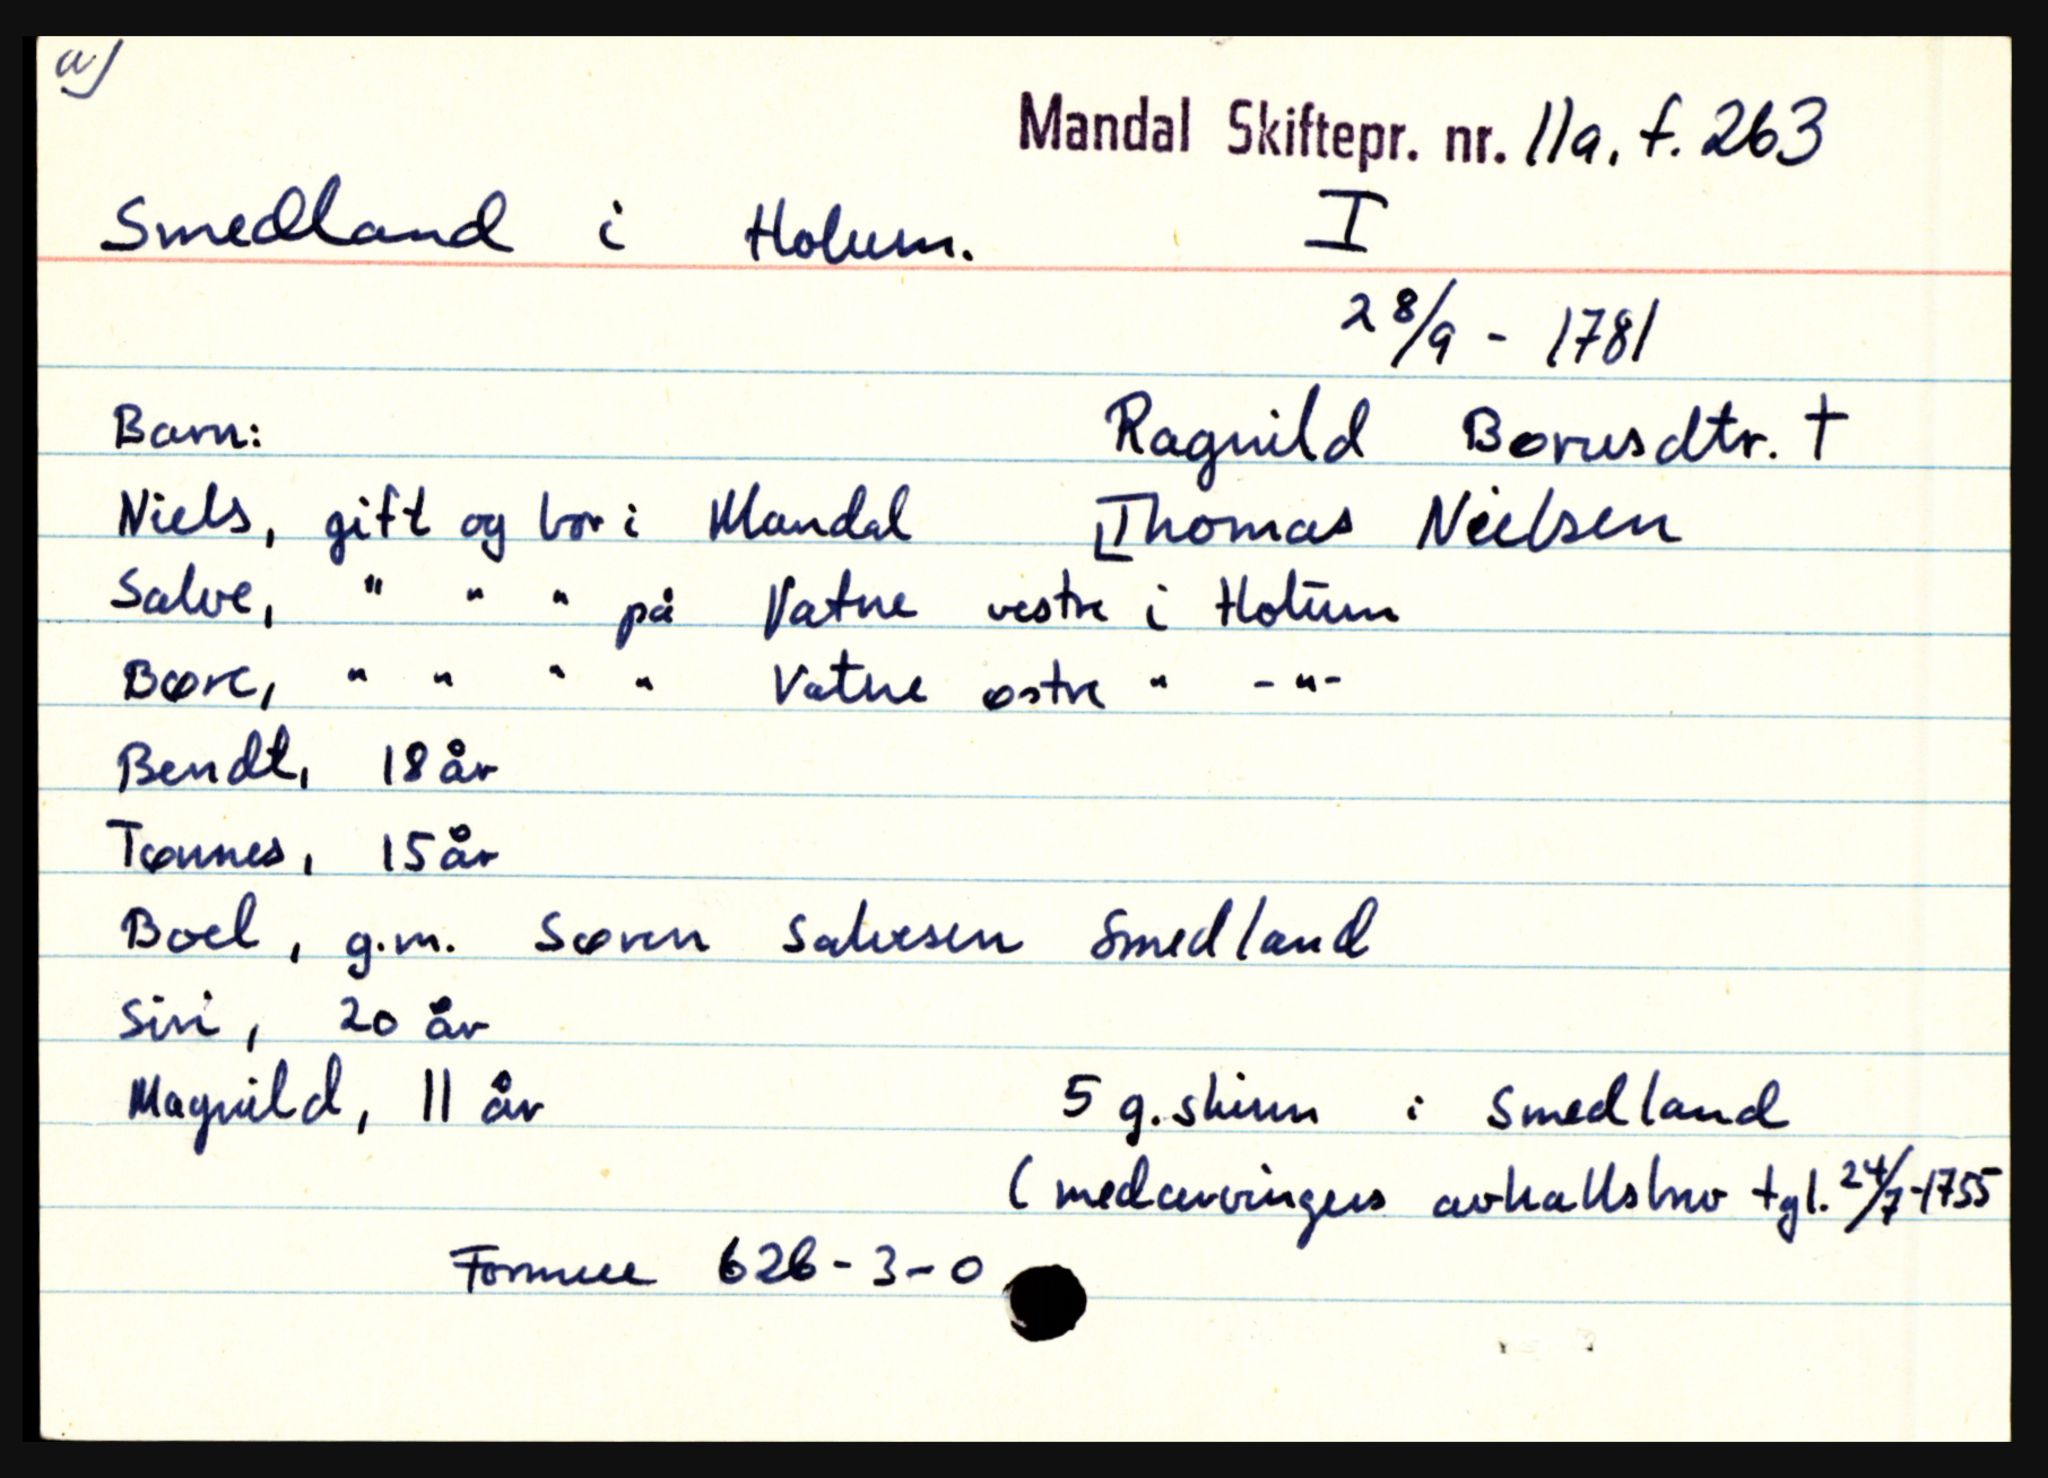 a)
Mandal Skiftepr. nr. 11a, f. 263
Smedland i Holum. I
28/9 - 1781
Barn: Ragnild Børusdtr. †
Niels, gift og bor i Mandal Thomas Nielsen
Salve, " " " på Vatne vestre i Holum
Børe, " " " " Vatne østre " -"-
Bendt, 18 år
Tønnes, 15 år
Boel, g.m. Søren Salvesen Smedland
Siri, 20 år
Magnild, 11 år 5 g.skinn i Smedland
(medarvingers avkallsbrev tgl. 24/7-1755
Formue 626-3-0